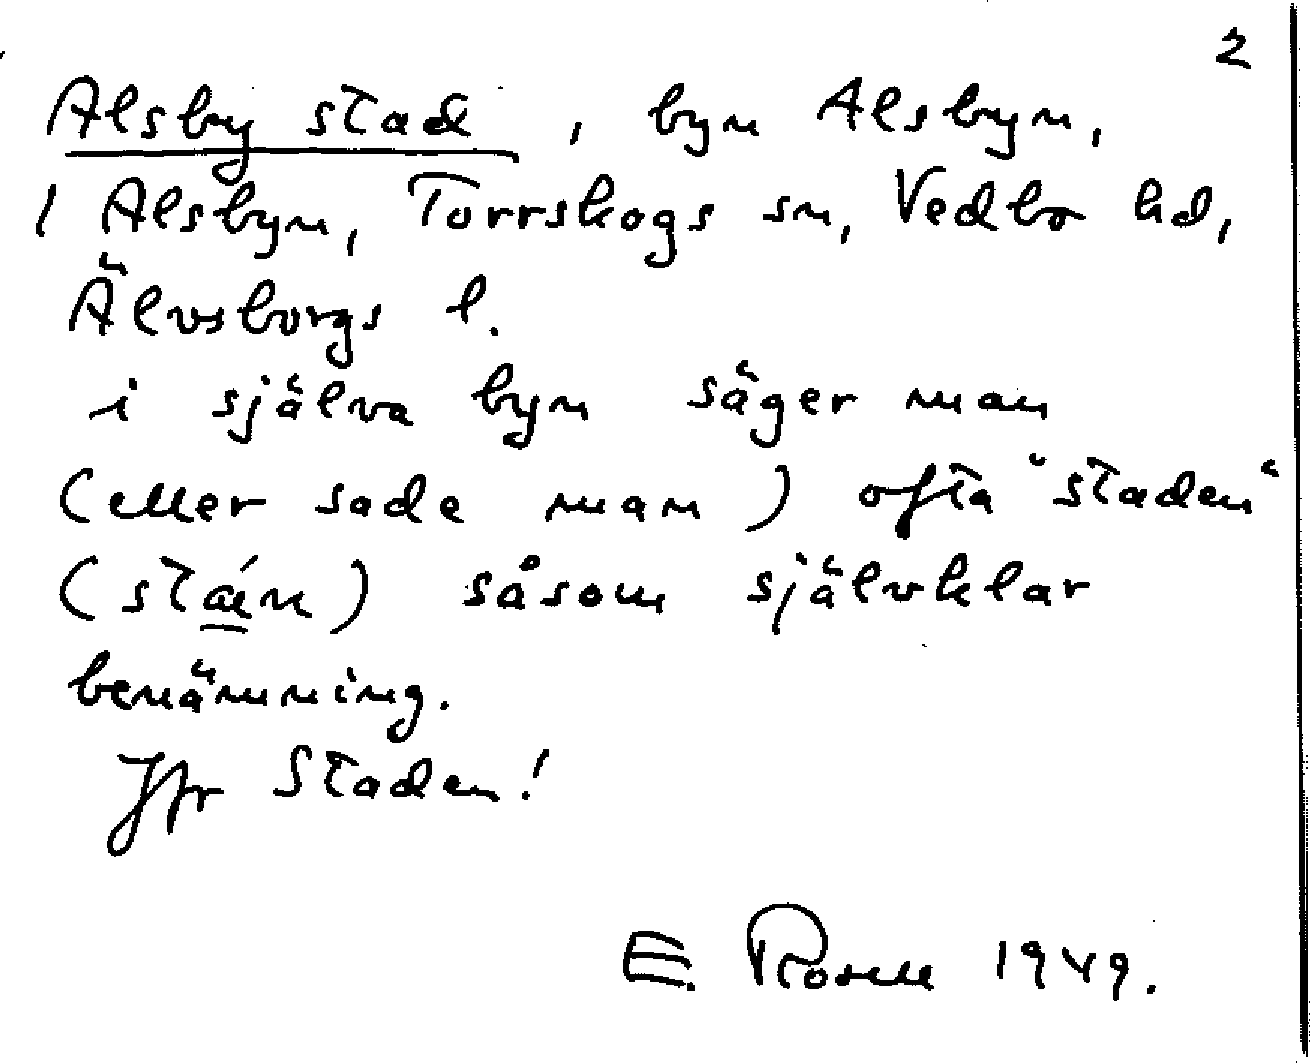 2
Alsby stad, byn Alsbyn,
i Alsbyn, Torrskogs sn, Vedbo hd,
Älvsborgs l.
i själva byn säger man
(eller sade man) ofta "staden"
(stáen) såsom självklar
benämning.
Jfr Staden!
E. Rosell 1949.